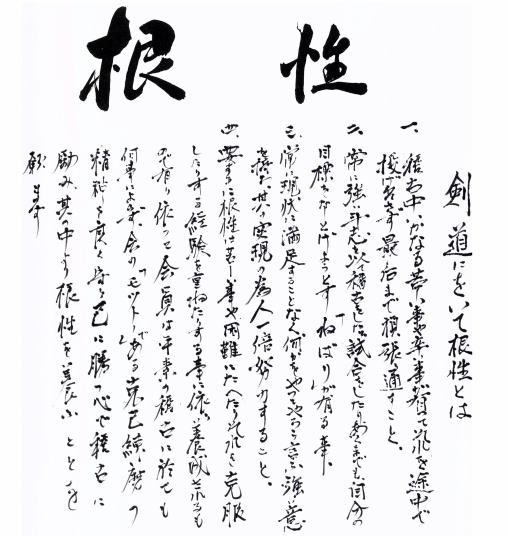 根性
剣道にをいて根性とは
一、稽古中いかなる苦い事や辛い事が有つて
途中で投げ出さず最后まで頑張り通すこと、
二、常に強い斗志を以て稽古をしたり試合をしたりあくまでも自分の
目標をなしとげようとする「ねばり」が有る事、
三、常に現状に満足することなく何かをやつてやろうと言ふ強い意
慾を其の実現の為人一倍努力すること、
四、要するに根性は苦しい事や困難にたへたりそれを克服
したりする経験を重ねたりする事に依つて養成されるも
ので有り依つて会員は平素の稽古に於ても
何事によらず会の「モットー」である克己練磨の
精神を良く守り己に勝つ心で稽古に
励み其の中より根性を養ふことを
願ます